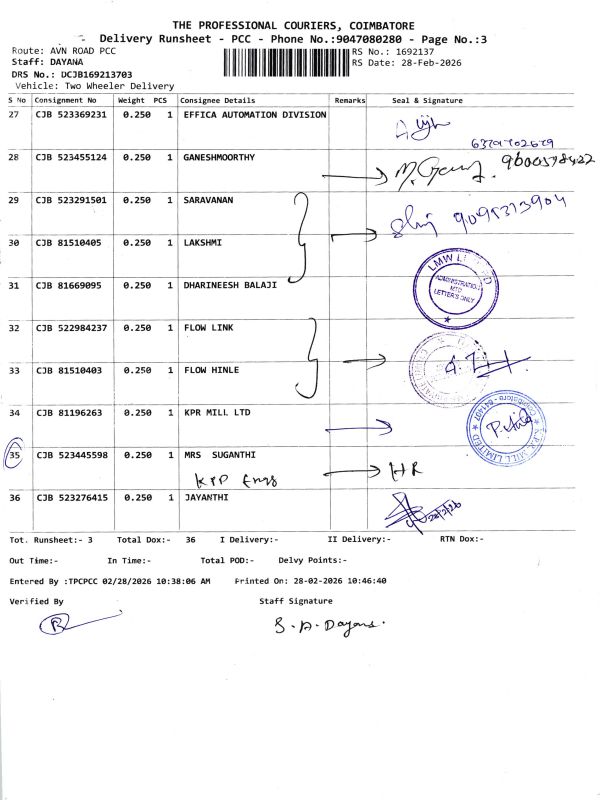 THE PROFESSIONAL COURIERS, COIMBATORE
Delivery Runsheet - PCC - Phone No.:9047080280 - Page No.:3
Route: AVN ROAD PCC
RS No.: 1692137
Staff: DAYANA
RS Date: 28-Feb-2026
DRS No.: DCJB169213703
Vehicle: Two Wheeler Delivery
S No Consignment No Weight PCS Consignee Details Remarks Seal & Signature
27 CJB 523369231 0.250 1 EFFICA AUTOMATION DIVISION
28 CJB 523455124 0.250 1 GANESHMOORTHY
29 CJB 523291501 0.250 1 SARAVANAN
9095313904
30 CJB 81510405 0.250 1 LAKSHMI
LMW
ADMINISTRATION
MTD
LETTER'S ONLY
31 CJB 81669095 0.250 1 DHARINEESH BALAJI
32 CJB 522984237 0.250 1 FLOW LINK
33 CJB 81510403 0.250 1 FLOW HINLE
34 CJB 81196263 0.250 1 KPR MILL LTD
K.P.R. MILL LIMITED
Coimbatore - 641407
35 CJB 523445598 0.250 1 MRS SUGANTHI
HR
36 CJB 523276415 0.250 1 JAYANTHI
28/2/26
Tot. Runsheet:- 3 Total Dox:- 36 I Delivery:- II Delivery:- RTN Dox:-
Out Time:- In Time:- Total POD:- Delvy Points:-
Entered By :TPCPCC 02/28/2026 10:38:06 AM Printed On: 28-02-2026 10:46:40
Verified By Staff Signature
S.A. Dayana.